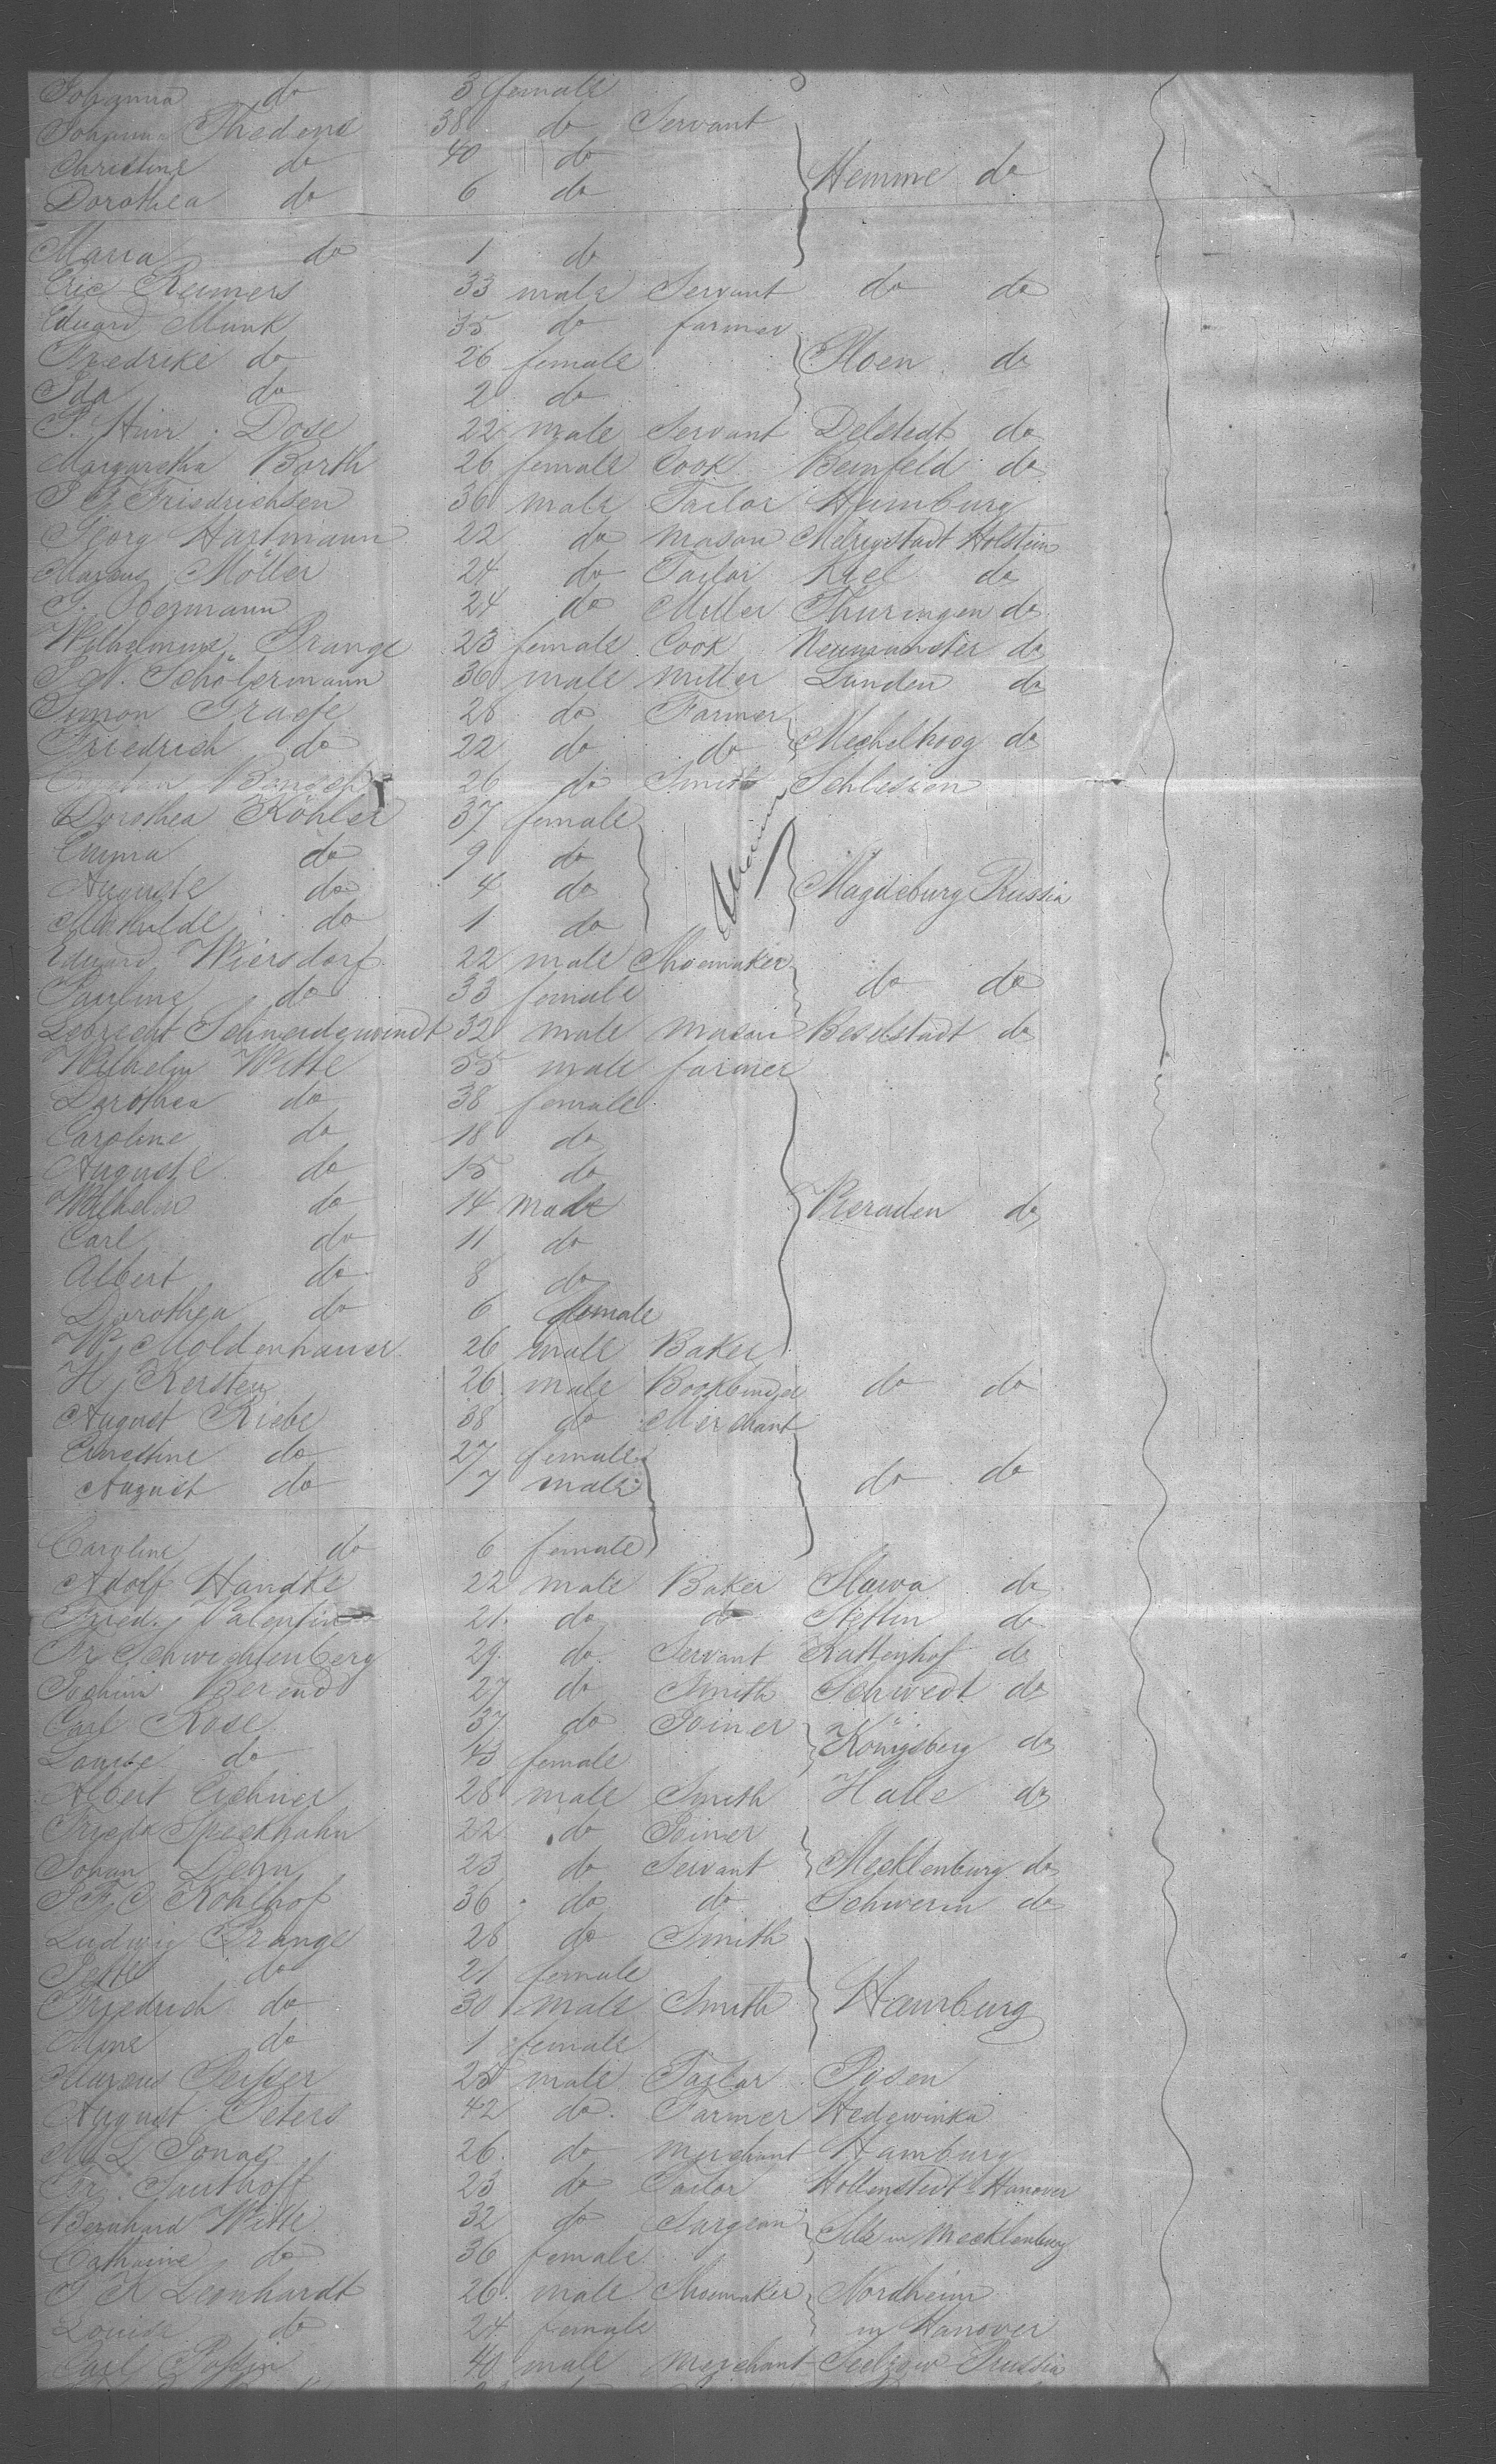 Johanna do 3 female
Johann Thedens 38 do Servant
Christine do 40 do
Dorothea do 6 do Hemme do
Maria do 1 do
Eric Reimers 33 male Servant do do
Eduard Munk 35 do farmer
Friedreke do 26 female Ploen do
Ida do 2 do
P. Hinr. Dose 22 male Servant Delstedt do
Margaretha Barth 26 female Cook Beinfeld do
P G Friedrichsen 36 male Tailor Hamburg
Georg Hartmann 22 do mason Holstein
Marcus Möller 24 do Tailor Kiel do
24 do Miller Thuringen do
Wilhelmine Prange 23 female Cook Neumunster do
Schölermann 36 male miller Lunden do
Simon Graefe 28 do Farmer
Friedrich do 22 do do Mechelhoog do
26 do Smith Schlesien
Dorothea Köhler 37 female
Emma do 9 do
Auguste do 4 do Magdeburg Prussia
Mathilde do 1 do
Eduard Wiersdorf 22 male Shoemaker
Pauline do 33 female do do
Lebrecht Schneidewindt 32 male mason Beselstadt do
Wilhelm Witte 55 male farmer
Dorothea do 38 female
Caroline do 18 do
Auguste do 15 do
Wilhelm do 14 male Vieraden do
Carl do 11 do
Albert do 8 do
Dorothea do 6 female
W. Moldenhauer 26 male Baker
H. Kersten 26 male Bookbinder do do
August Riebe 38 do Merchant
Ernestine do 27 female
August do 7 male do do
Caroline do 6 female
Adolf Handke 22 male Baker Slawa do
Fried. Valentin 21 do do Stettin do
Fr Schwichtenberg 29 do Servant Kattenhof do
Jochim Berend 27 do Smith Schwedt do
Carl Rose 37 do Joiner
Louise do 43 female Königsberg do
Albert 28 male Smith Halle do
Speckhahn 22 do Joiner
Johan Dehn 23 do Servant Mecklenburg do
J F C Kohlhof 36 do do Schwerin do
Ludwig Prange 28 do Smith
Jette do 21 female
Friedrich do 30 male Smith Hamburg
Mine do 1 female
Marcus 25 male Tailor Posen
August Peters 42 do Farmer Hedewinka
M L Jonas 26 do merchant Hamburg
Sauthoff 23 do Tailor Hollenstedt Hanover
Bernhard Witte 32 do Surgeon
Catharine do 36 female in Mecklenburg
J K Leonhardt 26 male Shoemaker Nordheim
Louise do 24 female in Hanover
Carl 40 male merchant Prussia